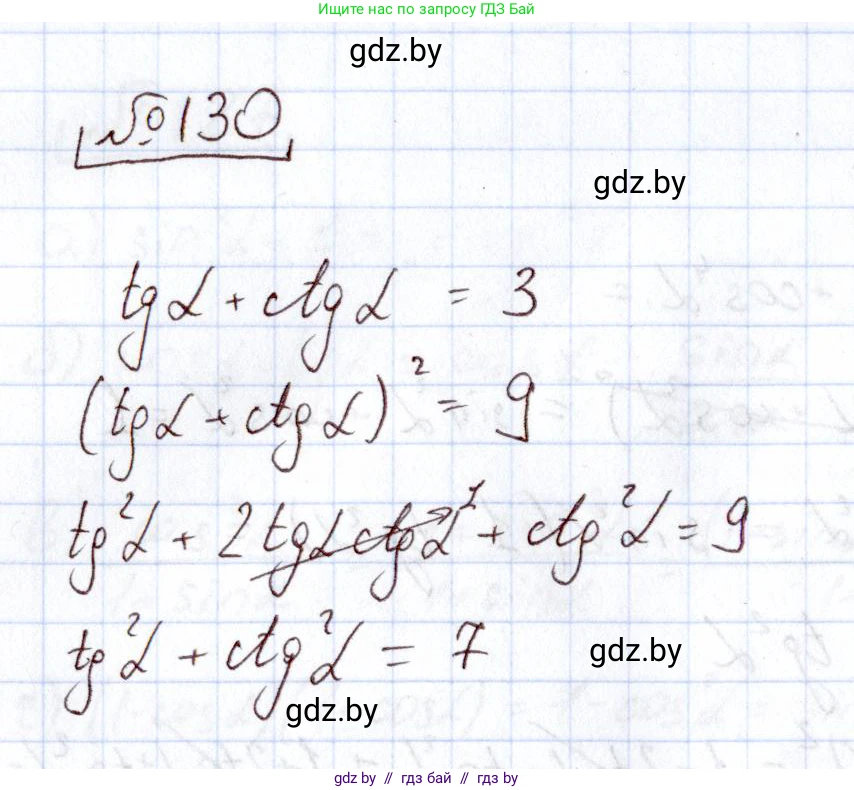 Ищите нас по запросу ГДЗ Бай
gdz.by
№130
gdz.by
tgα + ctgα = 3
(tgα + ctgα)² = 9
tg²α + 2tgα ctgα¹ + ctg²α = 9
tg²α + ctg²α = 7
gdz.by
gdz.by
gdz by // гдз бай // гдз by